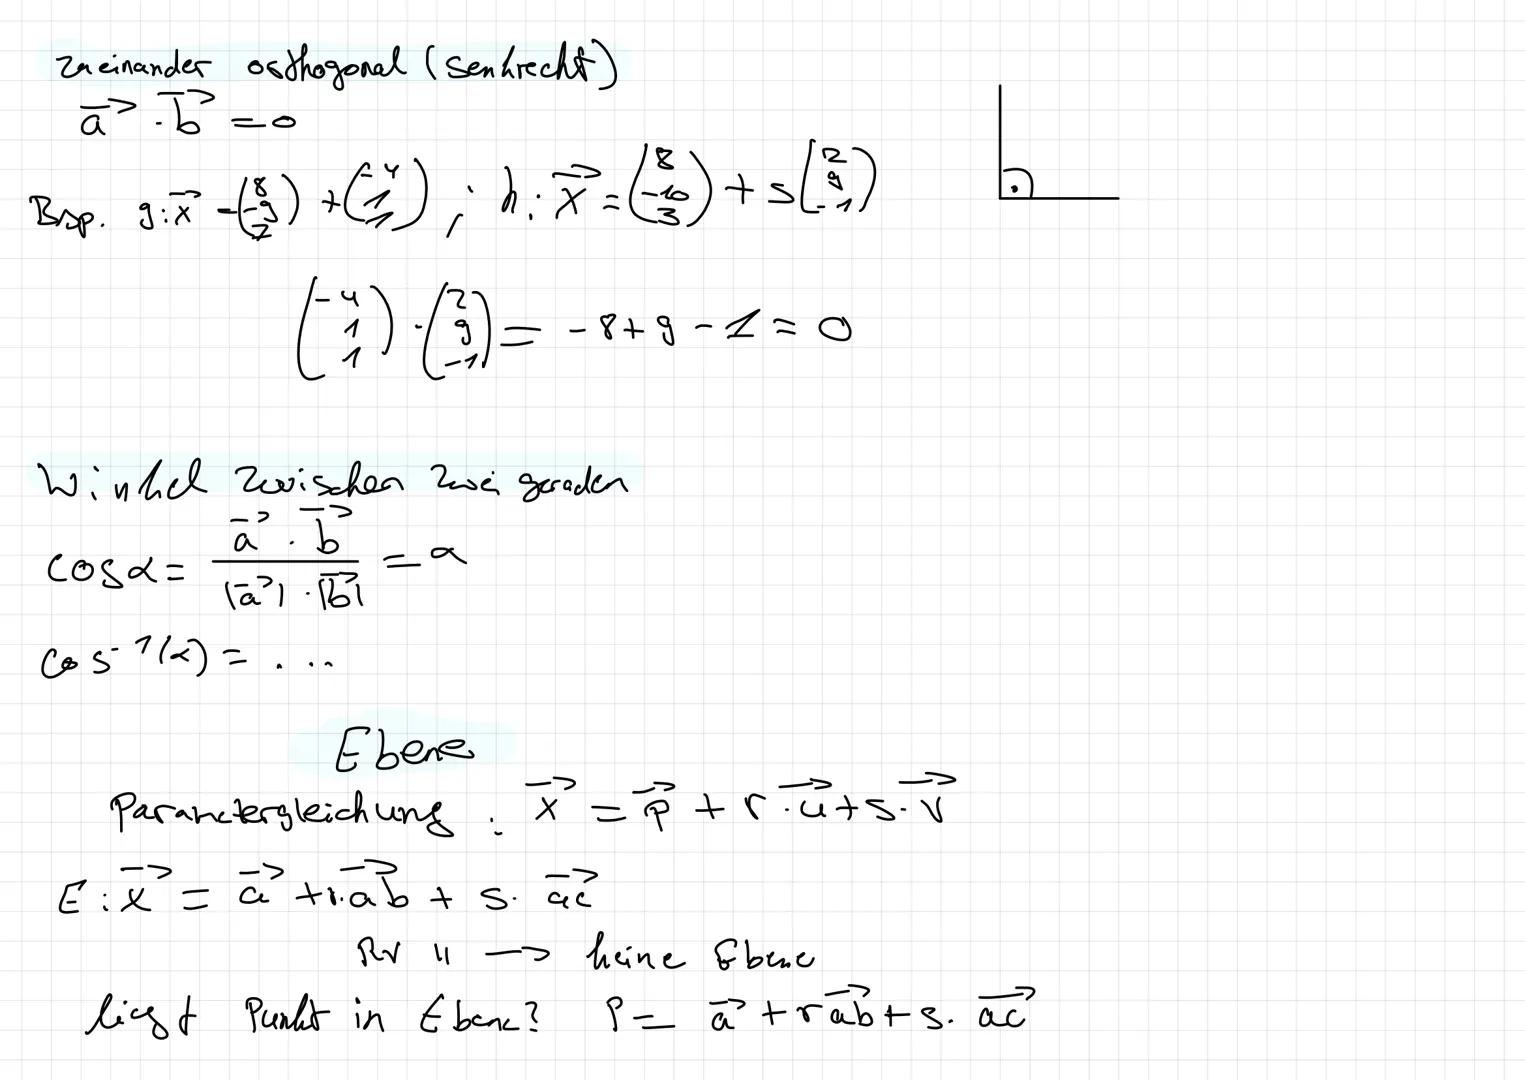 zueinander orthogonal (senkrecht)
a⃗ · b⃗ = 0
Bsp. g: x⃗ = (8 -9 7) + (-4 1 1) ; h: x⃗ = (8 -10 3) + s (2 9 -1)
(-4 1 1) · (2 9 -1) = -8 + 9 - 1 = 0
Winkel zwischen zwei geraden
cos α = (a⃗ · b⃗) / (|a⃗| · |b⃗|) = α
cos⁻¹(α) = ....
Ebene
Parametergleichung : x⃗ = p⃗ + r · u⃗ + s · v⃗
E : x⃗ = a⃗ + r · ab⃗ + s · ac⃗
RV || → keine Ebene
liegt Punkt in Ebene? P = a⃗ + r ab⃗ + s · ac⃗